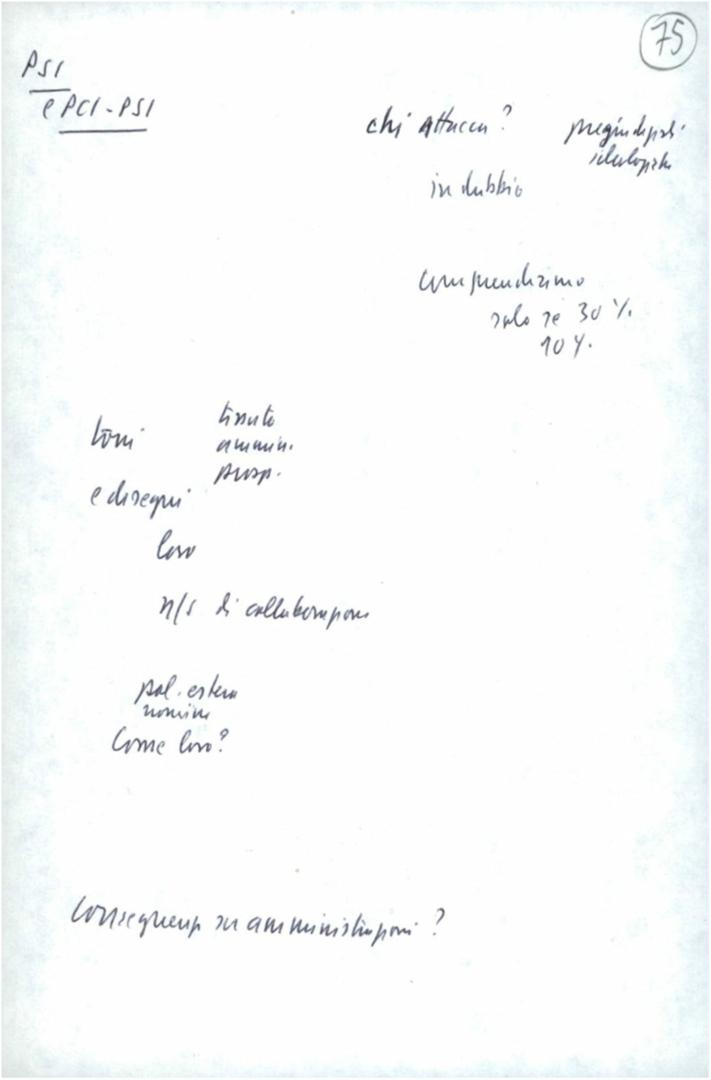 75
PSI
e PCI-PSI
chi attacca? pregiudiziali
ideologiche
in dubbio
comprendiamo
solo se 30%
10%
toni
tessuto
ammin.
prosp.
e disegni
loro
n/s di collaborazione
pol. estera
nomine
Come loro?
Conseguenze su amministrazioni?